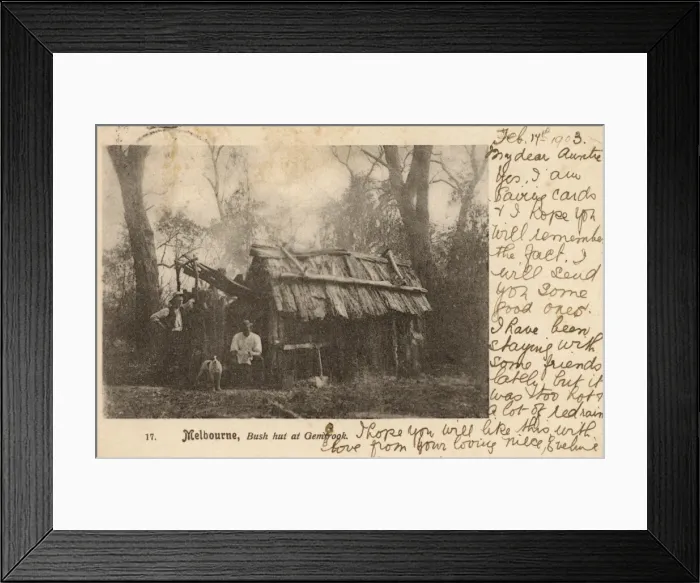 Feb. 14th 1903.
My dear Auntie
Yes, I am
saving cards
& I hope you
will remember
the fact. I
will send
you some
good ones.
I have been
staying with
some friends
lately but it
was too hot &
a lot of red rain
I hope you will like this with
love from your loving niece, Eveline
17. Melbourne, Bush hut at Gembrook.